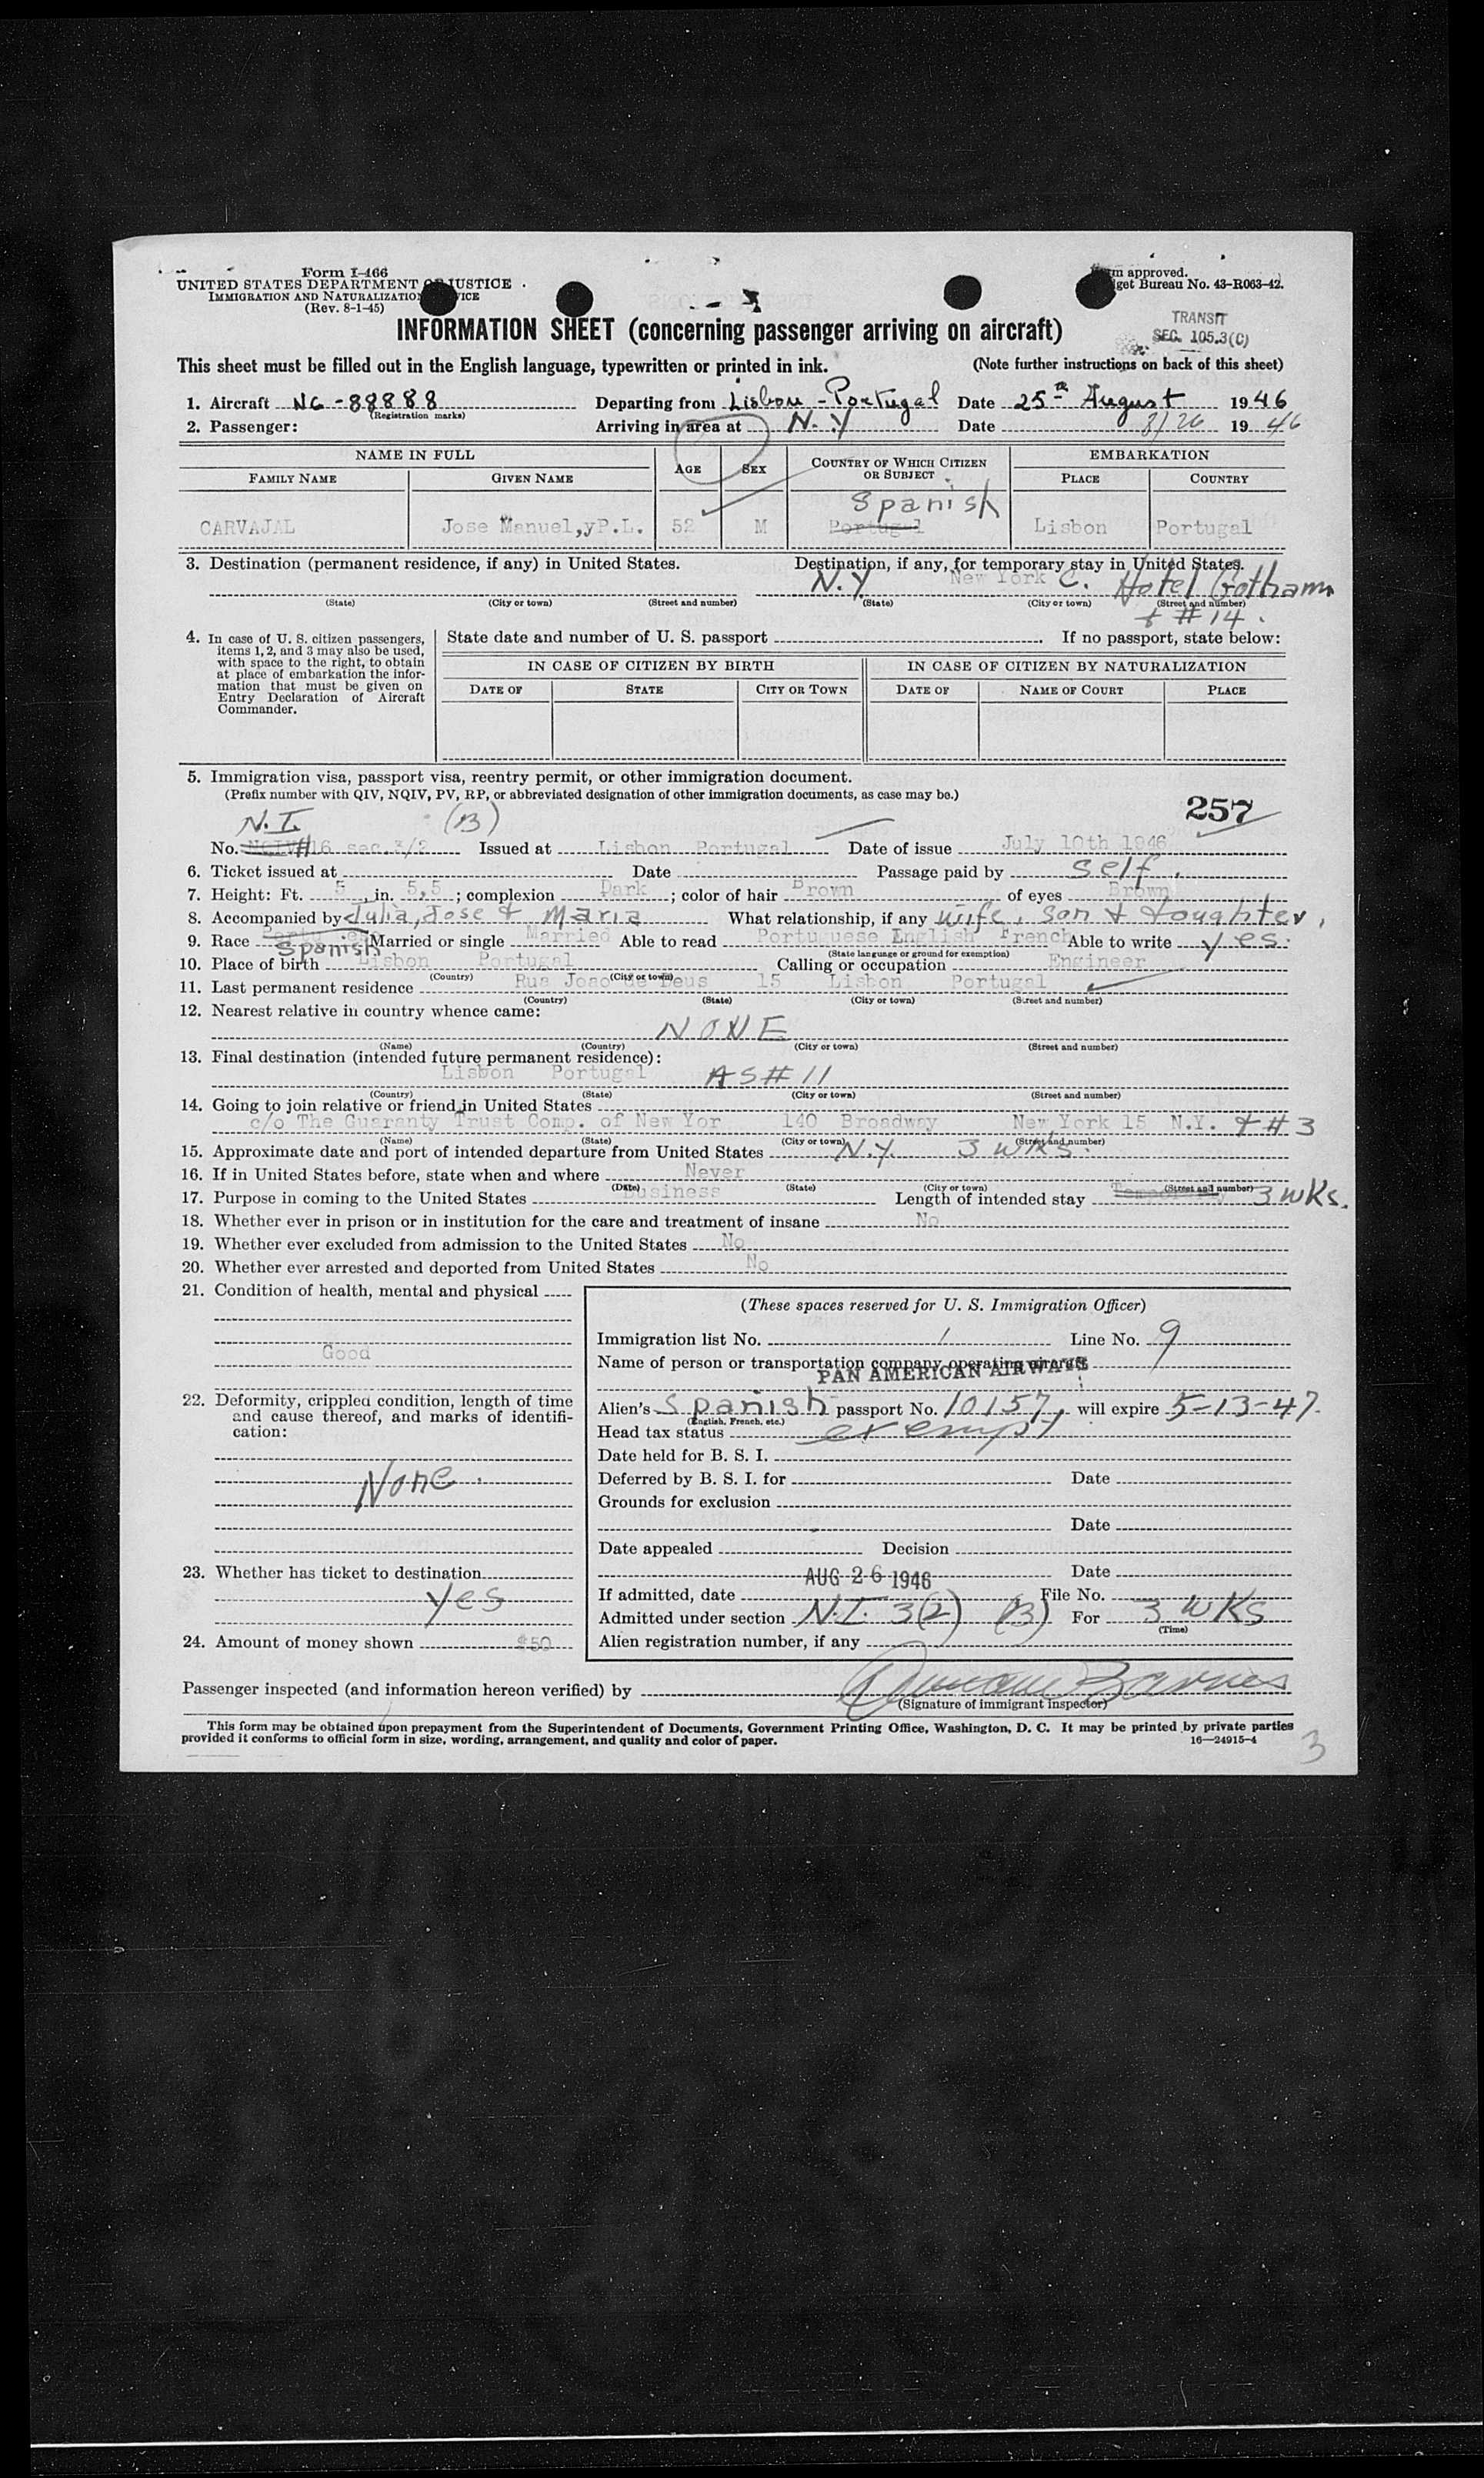 Form I-466
UNITED STATES DEPARTMENT OF JUSTICE
IMMIGRATION AND NATURALIZATION SERVICE
(Rev. 8-1-45)
approved.
Bureau No. 43-R063-42.
INFORMATION SHEET (concerning passenger arriving on aircraft)
TRANSIT
SEC. 105.3(C)
This sheet must be filled out in the English language, typewritten or printed in ink. (Note further instructions on back of this sheet)
1. Aircraft NC-88888 Departing from Lisbon - Portugal Date 25th August 1946
(Registration marks)
2. Passenger: Arriving in area at N.Y Date 8/26 1946
NAME IN FULL AGE SEX COUNTRY OF WHICH CITIZEN OR SUBJECT EMBARKATION
FAMILY NAME GIVEN NAME PLACE COUNTRY
Spanish
CARVAJAL Jose Manuel,yP.L. 52 M Portugal Lisbon Portugal
3. Destination (permanent residence, if any) in United States. Destination, if any, for temporary stay in United States.
N.Y New York C. Hotel Gotham
(State) (City or town) (Street and number) (State) (City or town) (Street and number)
+ #14.
4. In case of U. S. citizen passengers, items 1, 2, and 3 may also be used, with space to the right, to obtain at place of embarkation the information that must be given on Entry Declaration of Aircraft Commander.
State date and number of U. S. passport If no passport, state below:
IN CASE OF CITIZEN BY BIRTH IN CASE OF CITIZEN BY NATURALIZATION
DATE OF STATE CITY OR TOWN DATE OF NAME OF COURT PLACE
5. Immigration visa, passport visa, reentry permit, or other immigration document.
(Prefix number with QIV, NQIV, PV, RP, or abbreviated designation of other immigration documents, as case may be.)
257
N.I. (B)
No. NQIV#16 sec.3/2 Issued at Lisbon Portugal Date of issue July 10th 1946
6. Ticket issued at Date Passage paid by self.
7. Height: Ft. 5 in. 5,5; complexion Dark; color of hair Brown of eyes Brown
8. Accompanied by Julia, Jose & Maria What relationship, if any wife, son & daughter,
9. Race Spanish Married or single Married Able to read Portuguese English French Able to write yes.
(State language or ground for exemption)
10. Place of birth Lisbon Portugal Calling or occupation Engineer
(Country) (City or town)
11. Last permanent residence Rua Joao de Deus 15 Lisbon Portugal
(Country) (State) (City or town) (Street and number)
12. Nearest relative in country whence came:
NONE
(Name) (Country) (City or town) (Street and number)
13. Final destination (intended future permanent residence):
Lisbon Portugal AS # 11
(Country) (State) (City or town) (Street and number)
14. Going to join relative or friend in United States
c/o The Guaranty Trust Comp. of New Yor 140 Broadway New York 15 N.Y. + #3
(Name) (State) (City or town) (Street and number)
15. Approximate date and port of intended departure from United States N.Y. 3 wks.
16. If in United States before, state when and where Never
(Date) (State) (City or town) (Street and number)
17. Purpose in coming to the United States Business Length of intended stay 3 wks.
18. Whether ever in prison or in institution for the care and treatment of insane No
19. Whether ever excluded from admission to the United States No
20. Whether ever arrested and deported from United States No
21. Condition of health, mental and physical
Good
22. Deformity, crippled condition, length of time and cause thereof, and marks of identification:
None.
23. Whether has ticket to destination
yes
24. Amount of money shown $50
(These spaces reserved for U. S. Immigration Officer)
Immigration list No. 1 Line No. 9
Name of person or transportation company operating aircraft
PAN AMERICAN AIRWAYS
Alien's Spanish passport No. 10157, will expire 5-13-47.
(English, French, etc.)
Head tax status exempt
Date held for B. S. I.
Deferred by B. S. I. for Date
Grounds for exclusion
Date
Date appealed Decision
Date
AUG 26 1946
If admitted, date File No.
Admitted under section N.I. 3(2) (B) For 3 wks
(Time)
Alien registration number, if any
Passenger inspected (and information hereon verified) by Duncan Barnes
(Signature of immigrant inspector)
This form may be obtained upon prepayment from the Superintendent of Documents, Government Printing Office, Washington, D. C. It may be printed by private parties
provided it conforms to official form in size, wording, arrangement, and quality and color of paper. 16—24915-4
3